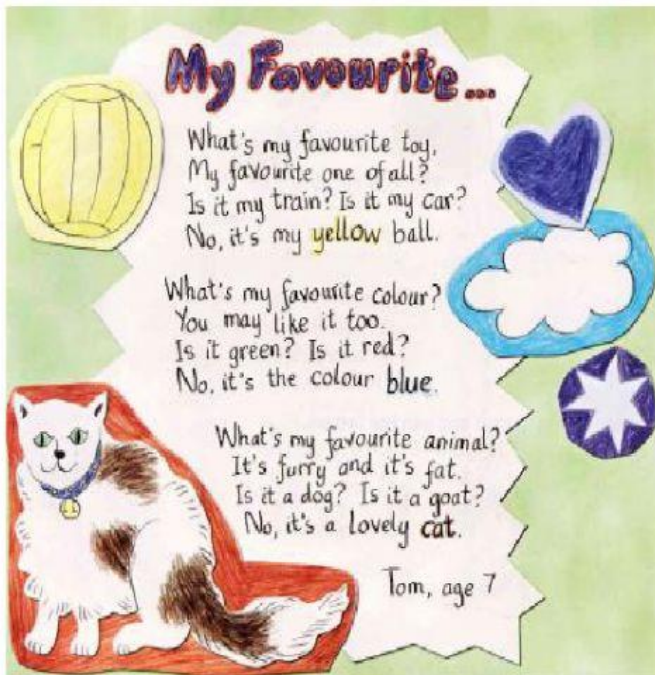 My Favourite...
What's my favourite toy,
My favourite one of all?
Is it my train? Is it my car?
No, it's my yellow ball.
What's my favourite colour?
You may like it too.
Is it green? Is it red?
No, it's the colour blue.
What's my favourite animal?
It's furry and it's fat.
Is it a dog? Is it a goat?
No, it's a lovely cat.
Tom, age 7